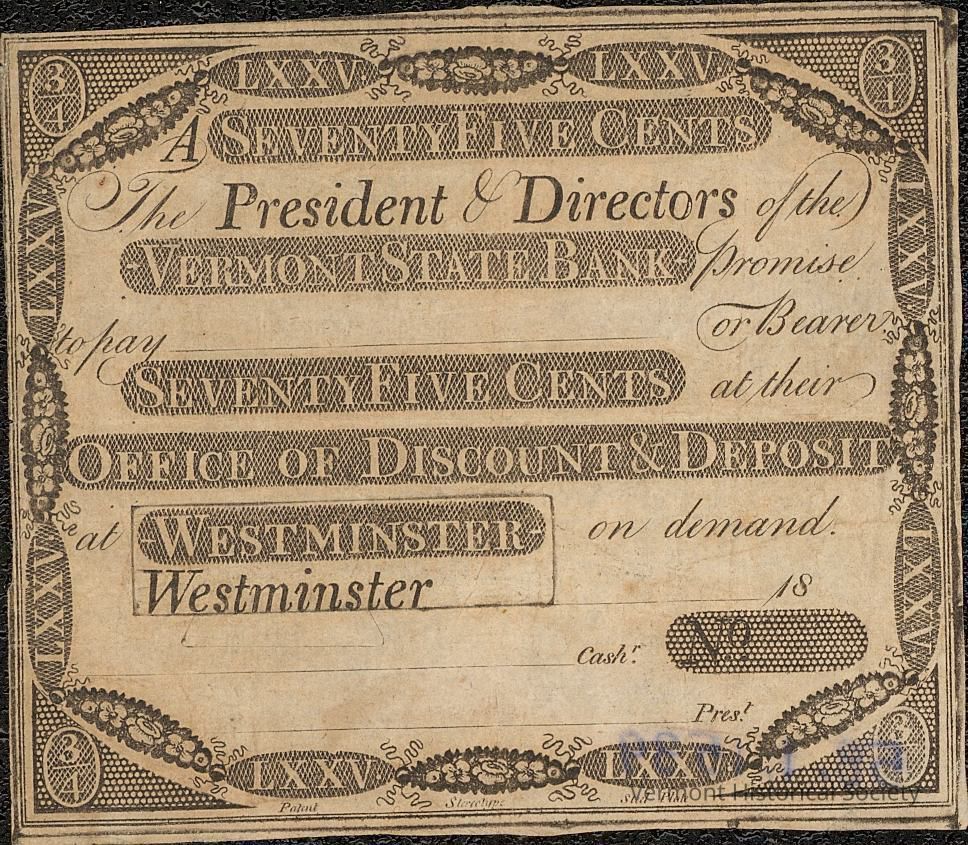 3/4 LXXV LXXV 3/4
A SEVENTY FIVE CENTS
The President & Directors of the
VERMONT STATE BANK Promise
to pay or Bearer
SEVENTY FIVE CENTS at their
OFFICE OF DISCOUNT & DEPOSIT
at WESTMINSTER on demand.
Westminster 18
Cashr. No
Prest
LXXV
LXXV
LXXV
LXXV
3/4 LXXV LXXV 3/4
Patent Stereotype Steel Plate
Vermont Historical Society